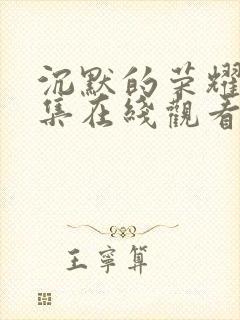 沉默的荣耀
集在线觀看
王寧算